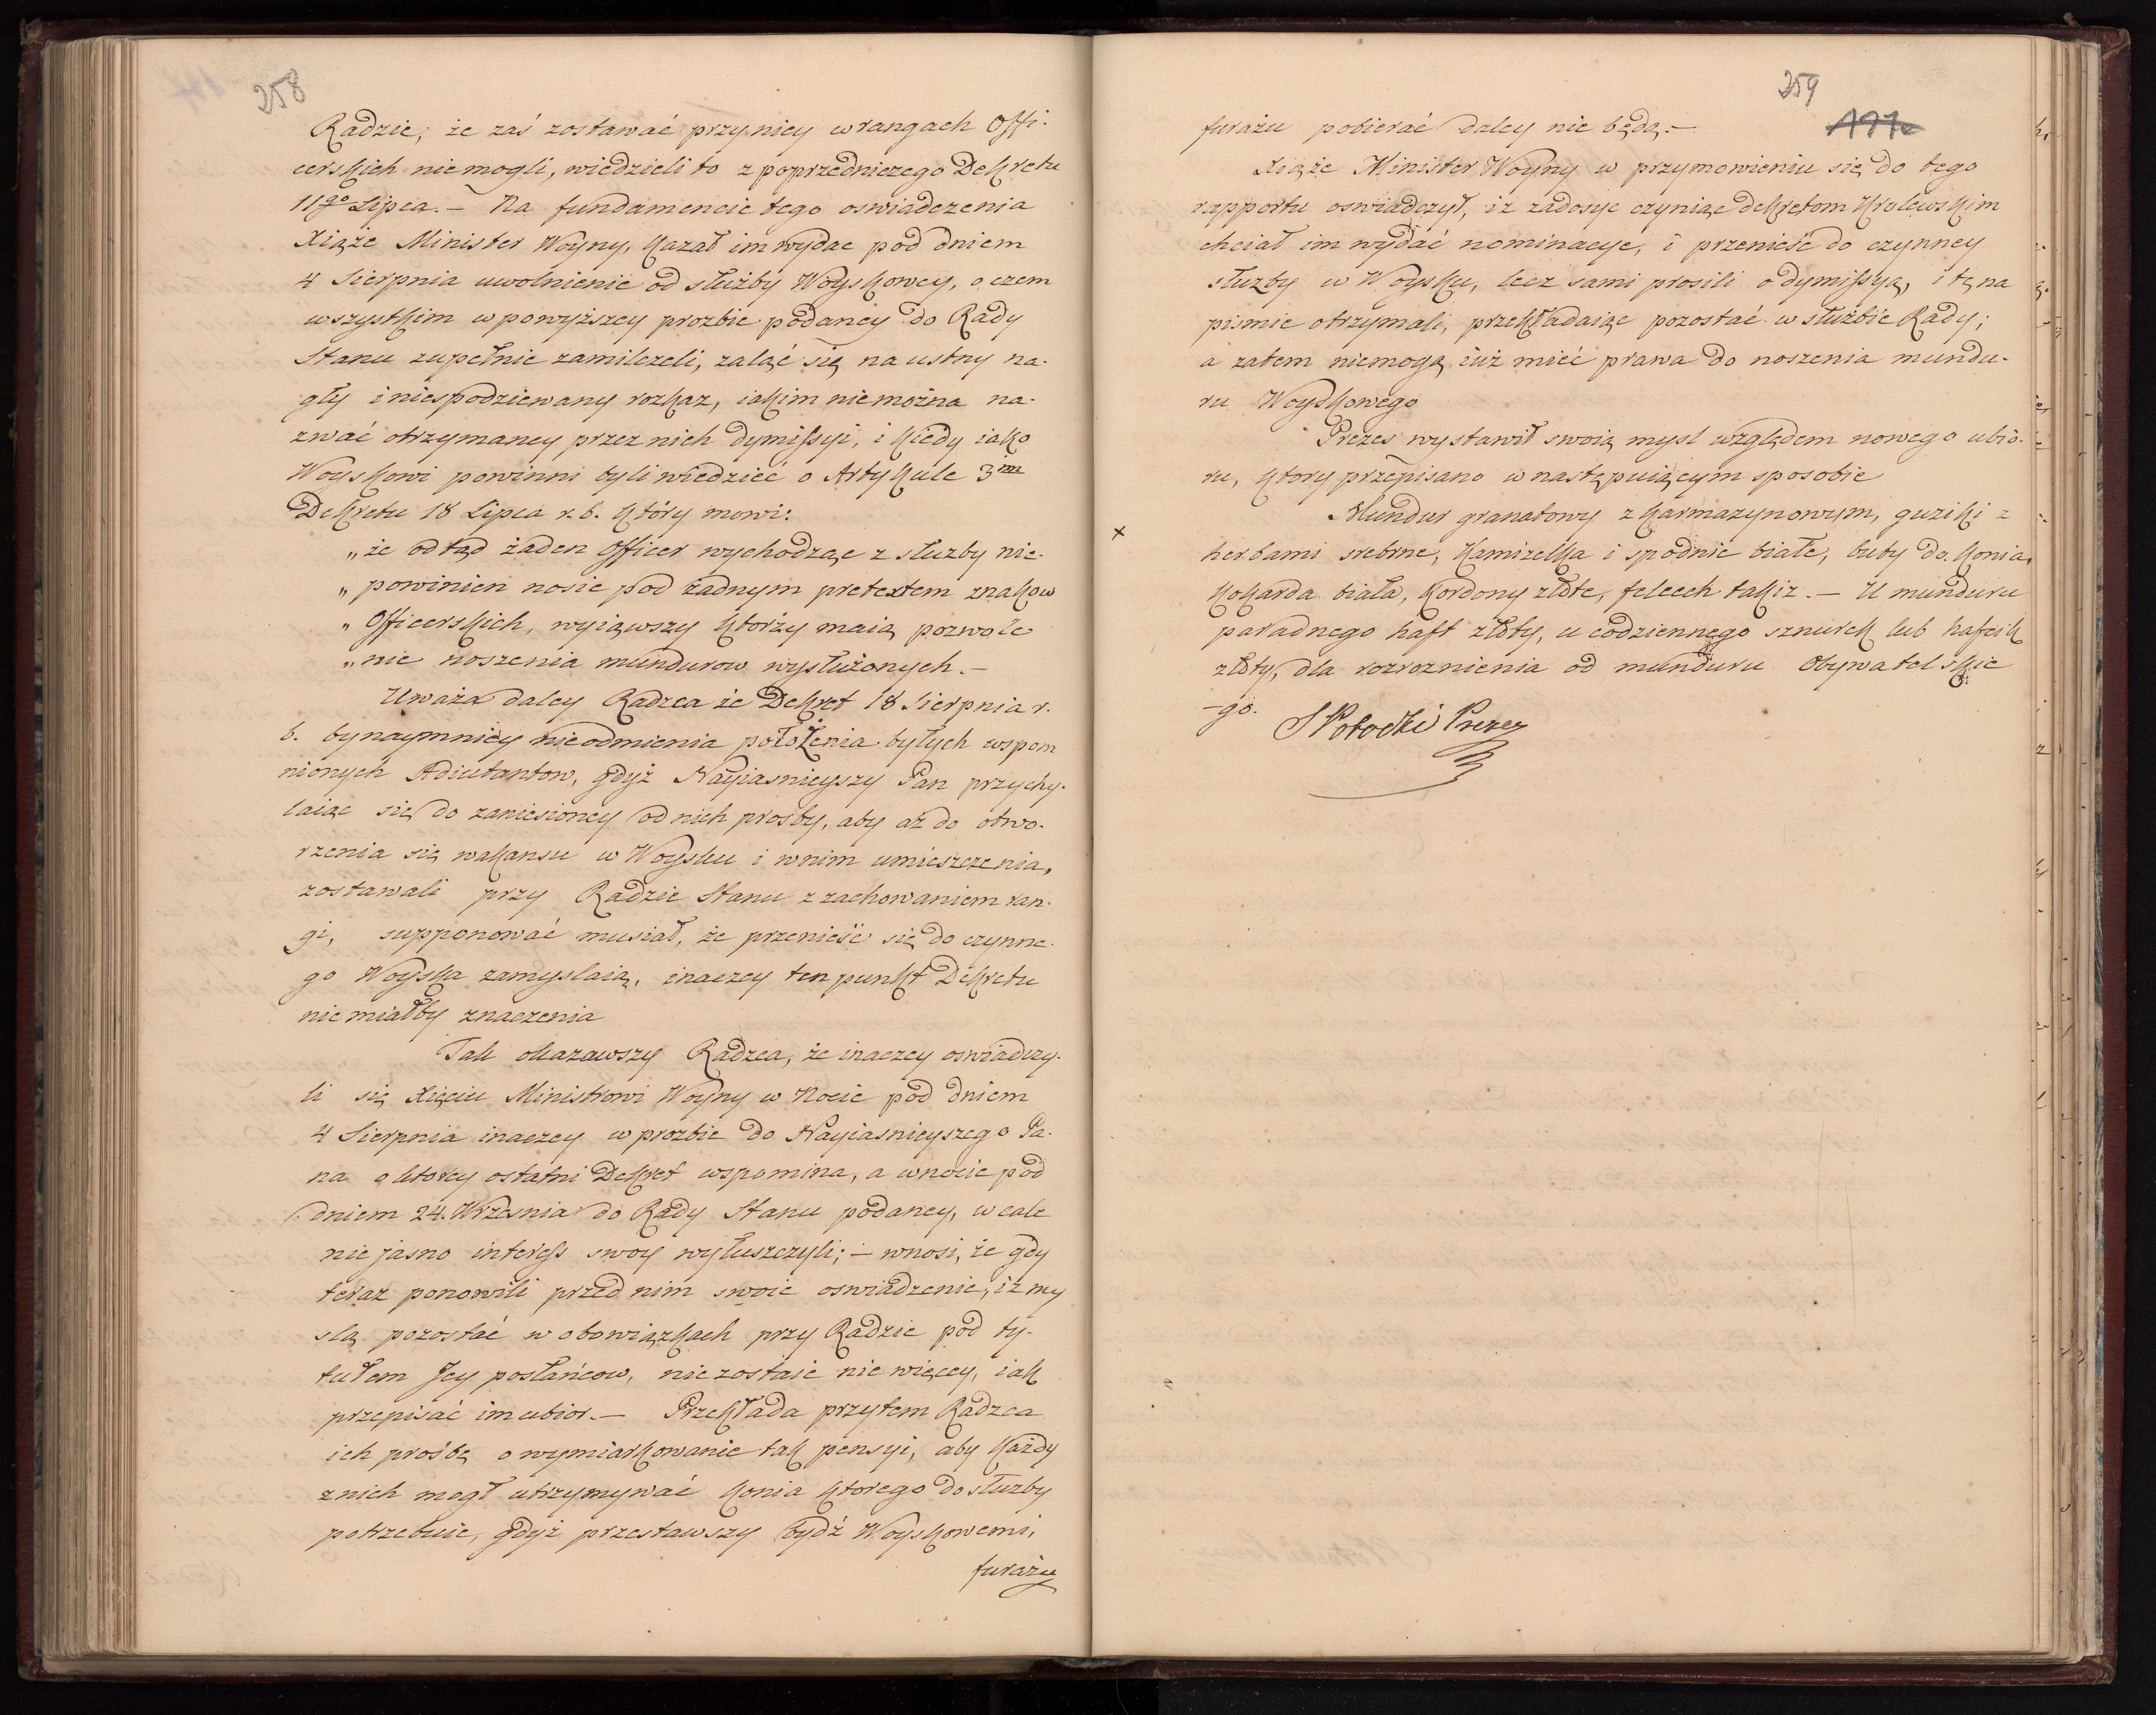 258
Radzie, że zaś zostawać przy niey w rangach Offi-
cerskich niemogli, wiedzieli to z poprzedniczego Dekretu
11go Lipca. – Na fundamencie tego oswiadczenia
Xiąże Minister Woyny, kazał im wydac pod dniem
4 Sierpnia uwolnienie od służby Woyskowey, o czem
wszystkim w powyższey prozbie podaney do Rady
Stanu zupełnie zamilczeli, żaląć się na ustny na-
gły i niespodziewany rozkaz, iakim niemożna na-
zwać otrzymaney przez nich dymissyi, i kiedy iako
Woyskowi powinni byli wiedzieć o Artykule 3im
Dekretu 18 Lipca r. b. który mowi:
„ że odtąd żaden Officer wychodząc z służby nie-
„ powinien nosic pod żadnym pretextem znakow
„ Officerskich, wyiąwszy ktorzy maią pozwole
„ nie noszenia mundurow wysłużonych. –
Uważa daley Radzca że Dekret 18 Sierpnia r.
b. bynaymniey nieodmienia położenia byłych wspom
nionych Adiutantow, gdyż Nayiasnieyszy Pan przychy-
laiąc się do zaniesioney od nich prosby, aby aż do otwo-
rzenia się wakansu w Woysku i wnim umieszczenia,
zostawali przy Radzie Stanu z zachowaniem ran-
gi, supponować musiał, że przenieść się do czynne-
go Woyska zamyslaią, inaczey ten punkt Dekretu
nie miałby znaczenia
Tak okazawszy Radzca, że inaczey oswiadczy-
li się Xięciu Ministrowi Woyny w Nocie pod dniem
4 Sierpnia inaczey w prozbie do Nayiasnieyszego Pa-
na o ktorey ostatni Dekret wspomina, a wnocie pod
dniem 24. Września do Rady Stanu podaney, wcale
nie jasno interess swoy wyłuszczyli; – wnosi, że gdy
teraz ponowili przed nim swoie oswiadzenie, iż my
slą pozostać w obowiązkach przy Radzie pod ty-
tułem Jey posłańcow, nie zostaie nic więcey, iak
przepisać im ubior. – Przekłada przytem Radzca
ich prośbę o wymiarkowanie tak pensyi, aby każdy
znich mogł utrzymywać konia ktorego do służby
potrzebuie, gdyż przestawszy bydź Woyskowemi,
furażu
259
furażu pobierać daley nie będą. –
Xiąże Minister Woyny w przymowieniu się do tego
rapportu oswiadczył, iż zadosyc czyniąc dekretom Krolewskim
chciał im wydać nominacye, i przenieść do czynney
służby w Woysku, lecz sami prosili o dymissyą, i tę na
pismie otrzymali, przekładaiąc pozostać w służbie Rady;
a zatem niemogą iuż mieć prawa do noszenia mundu-
ru Woyskowego
Prezes wystawił swoią mysl względem nowego ubio-
ru, ktory przepisano w następuiącym sposobie
x Mundur granatowy z karmazynowym, guziki z
herbami srebrne, kamizelka i spodnie białe, buty do konia,
kokarda biała, kordony złote, felcech takiż. – U munduru
paradnego haft złoty, u codziennego sznurek lub hafcik
złoty, dla rozroznienia od munduru Obywatelskie
-go.
S Potocki Prezes